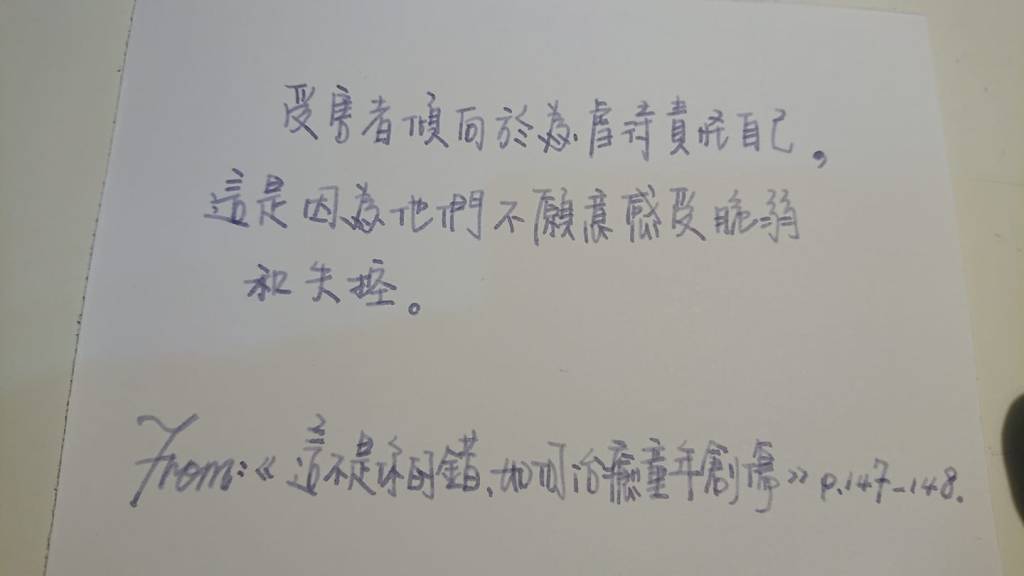 受害者傾向於為虐待責怪自己，
這是因為他們不願意感受脆弱
和失控。
From:《這不是你的錯、如何治癒童年創傷》p.147-148.